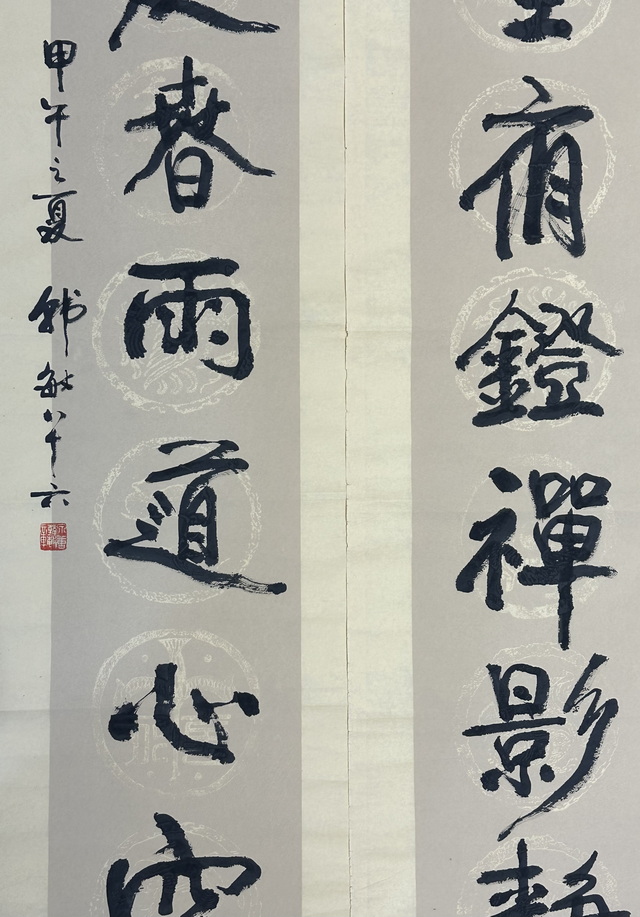 夜鐙禪影
春雨道心
甲午之夏 韓敏八十六